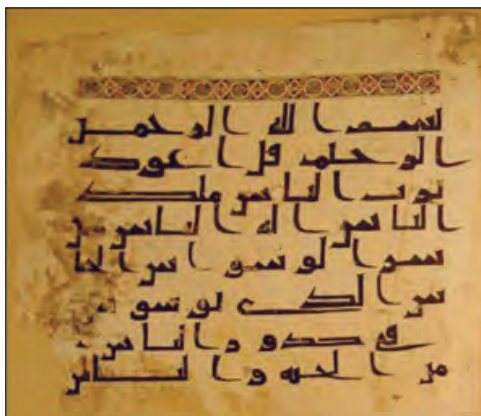 بسم الله الرحمن
الرحيم قل اعوذ
برب الناس ملك
الناس اله الناس من
شر الوسواس الخنا
س الذى يوسوس
فى صدور الناس
من الجنة والناس